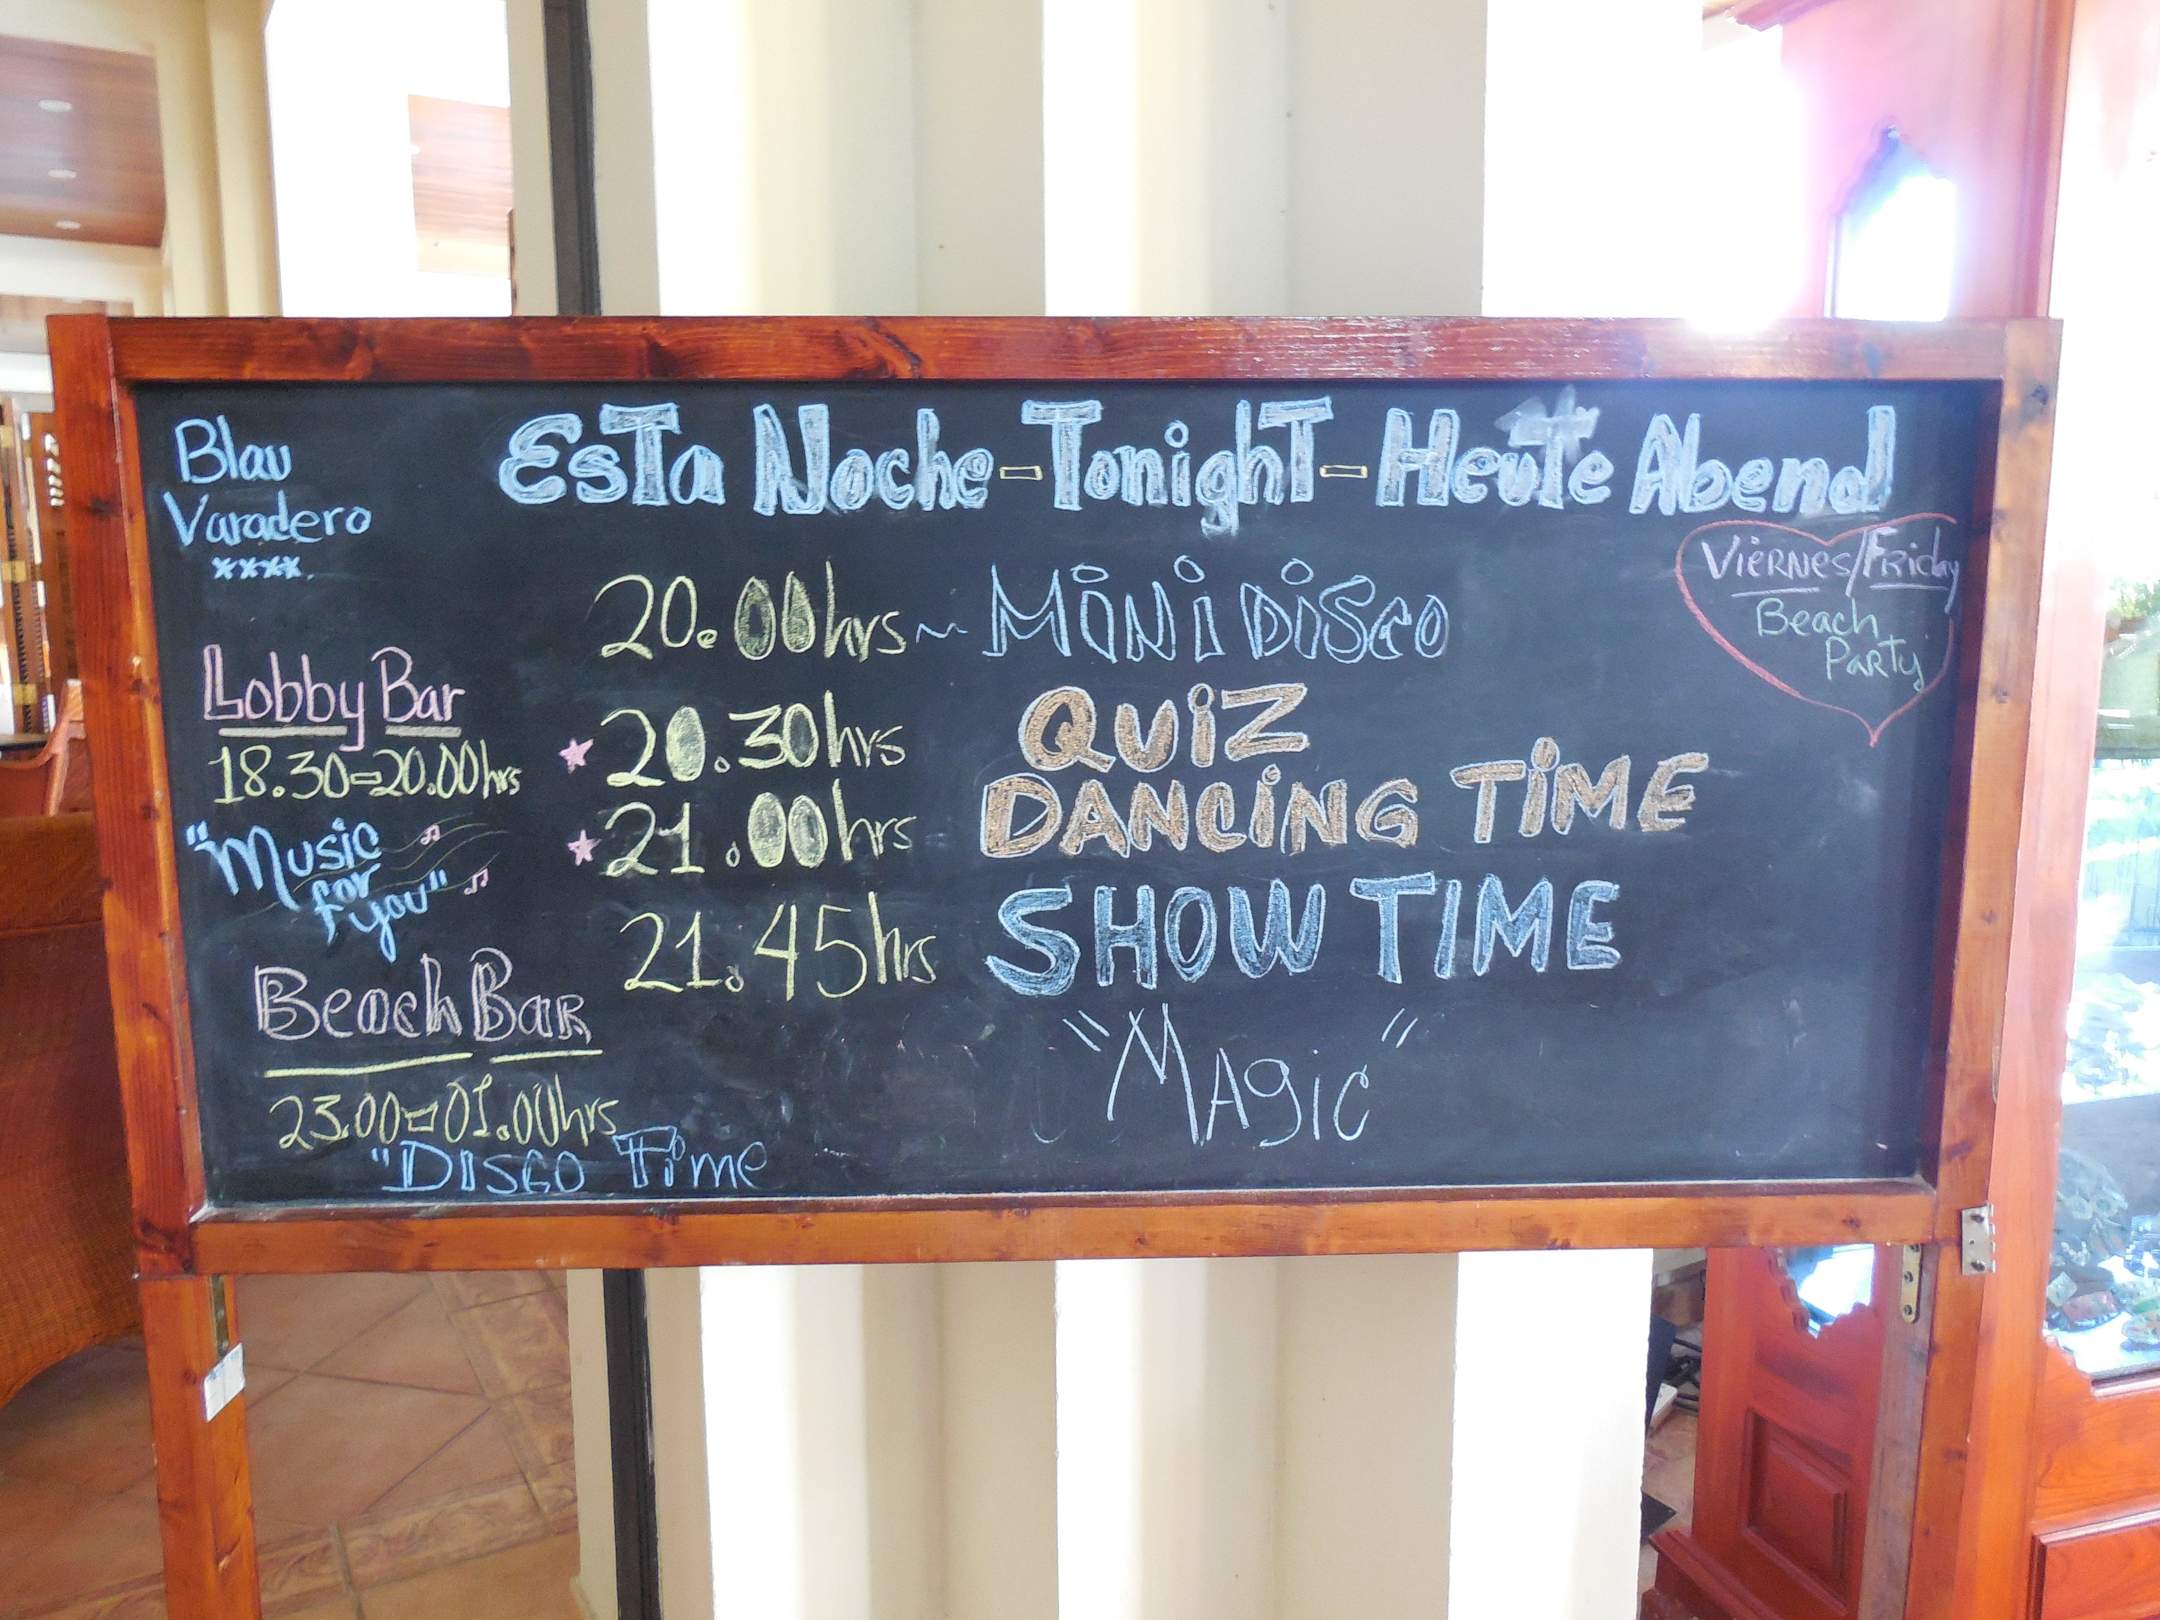 Blau
Varadero
****.
EsTa Noche-TonighT-HeuTe Abend
Viernes/Friday
Beach
Party
Lobby Bar
18.30-20.00hrs
"Music
for
you"
Beach Bar
23.00-01.00hrs
"Disco Time
20.00hrs ~ MiNi DiSco
★ 20.30hrs QUiZ
★ 21.00hrs DANCiNG TiME
21.45hrs SHOW TIME
"MAgic"